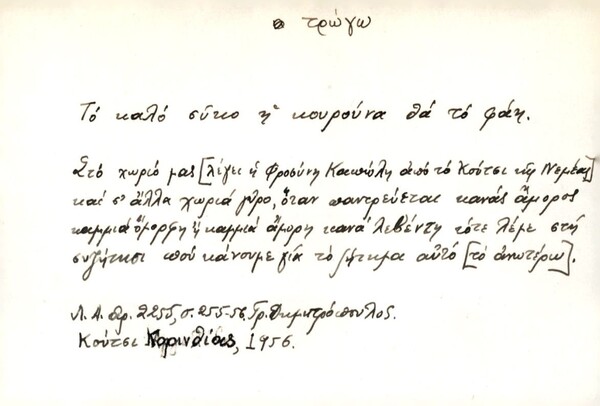 τρώγω
Τό καλό σῦκο ἡ κουρούνα θά τό φάῃ.
Στό χωριό μας [λέγει ἡ Φροσύνη Καπώλη ἀπό τό Κούτσι τῆς Νεμέας]
καί σ' ἄλλα χωριά γύρο, ὅταν παντρεύεται κανάς ἄμορος
καμμιά ὄμορφη ἤ καμμιά ἄμορη κανά λεβέντη τότε λέμε στή
συζήτησι πού κάνουμε γιά τό ζήτημα αὐτό [τό ἀνωτέρω].
Λ. Α. ἀρ. 2255, σ. 255-56, Γρ. Δημητρόπουλος.
Κούτσι Κορινθίας, 1956.